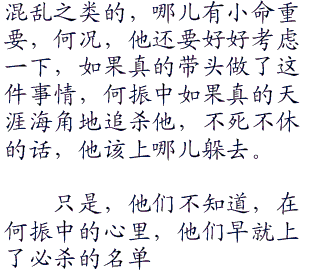 混乱之类的，哪儿有小命重
要，何况，他还要好好考虑
一下，如果真的带头做了这
件事情，何振中如果真的天
涯海角地追杀他，不死不休
的话，他该上哪儿躲去。
只是，他们不知道，在
何振中的心里，他们早就上
了必杀的名单